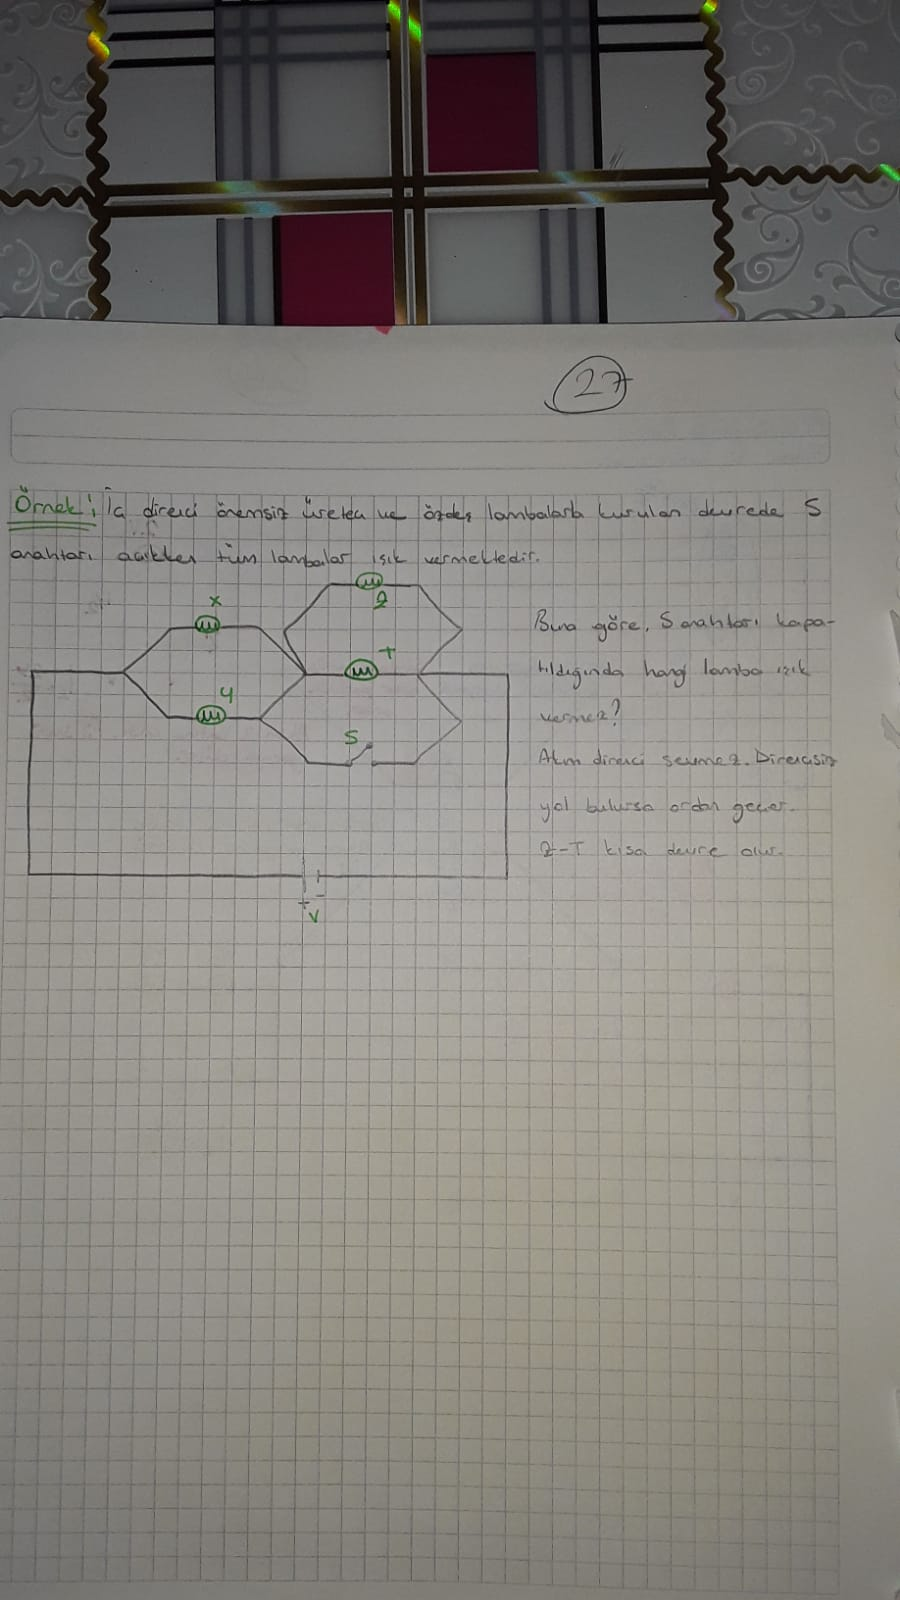 27
Örnek: İç direnci önemsiz üreteç ve özdeş lambalarla kurulan devrede S
anahtarı açıkken tüm lambalar ışık vermektedir.
X
Z
T
Y
S
Buna göre, S anahtarı kapa-
tıldığında hangi lamba ışık
vermez?
Akım direnci sevmez. Dirençsiz
yol bulursa ordan geçer.
Z-T kısa devre olur.
+ -
V